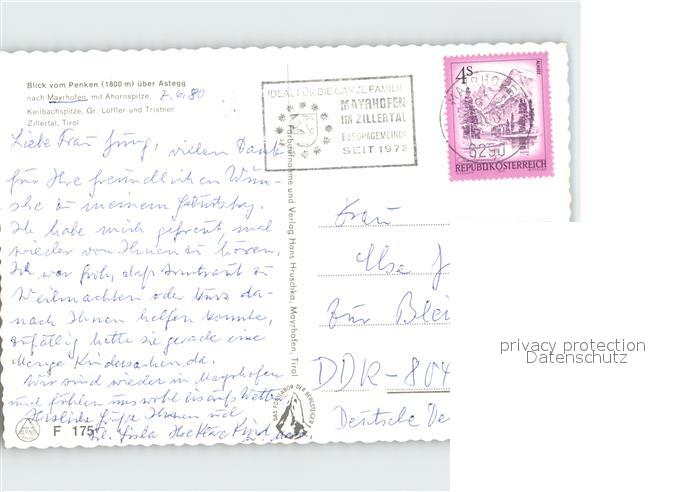 Blick vom Penken (1800 m) über Astegg
nach Mayrhofen, mit Ahornspitze, 7.6.80
Keilbachspitze, Gr. Löffler und Tristner
Zillertal, Tirol
Liebe Frau Jung, vielen Dank
für Ihre freundlichen Wün-
sche zu meinem Geburtstag.
Ich habe mich gefreut, mal
wieder von Ihnen zu hören.
Ich war froh, daß zu
Weihnachten oder kurz da-
nach Ihnen helfen konnte,
zufällig hatte sie gerade eine
Menge Kindersachen da.
Wir sind wieder in Mayrhofen
und fühlen uns wohl bis aufs Wetter
Herzliche Grüße Ihnen und
F 175
Farbaufnahme und Verlag Hans Hruschka, Mayrhofen, Tirol
DAS FOTOLABOR DER BERGSTEIGER
IDEAL FÜR DIE GANZE FAMILIE
MAYRHOFEN
IM ZILLERTAL
EUROPAGEMEINDE
SEIT 1973
4S
REPUBLIK ÖSTERREICH
MAYRHOFEN
6290
Frau
Ilse J
Zur Blei
DDR-804
Deutsche De
privacy protection
Datenschutz